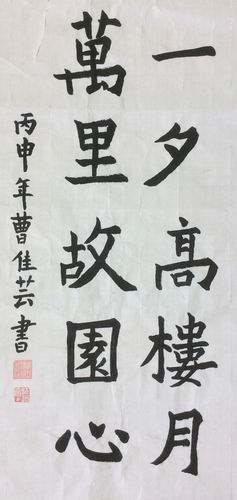 一夕高樓月
萬里故園心
丙申年曹佳芸書